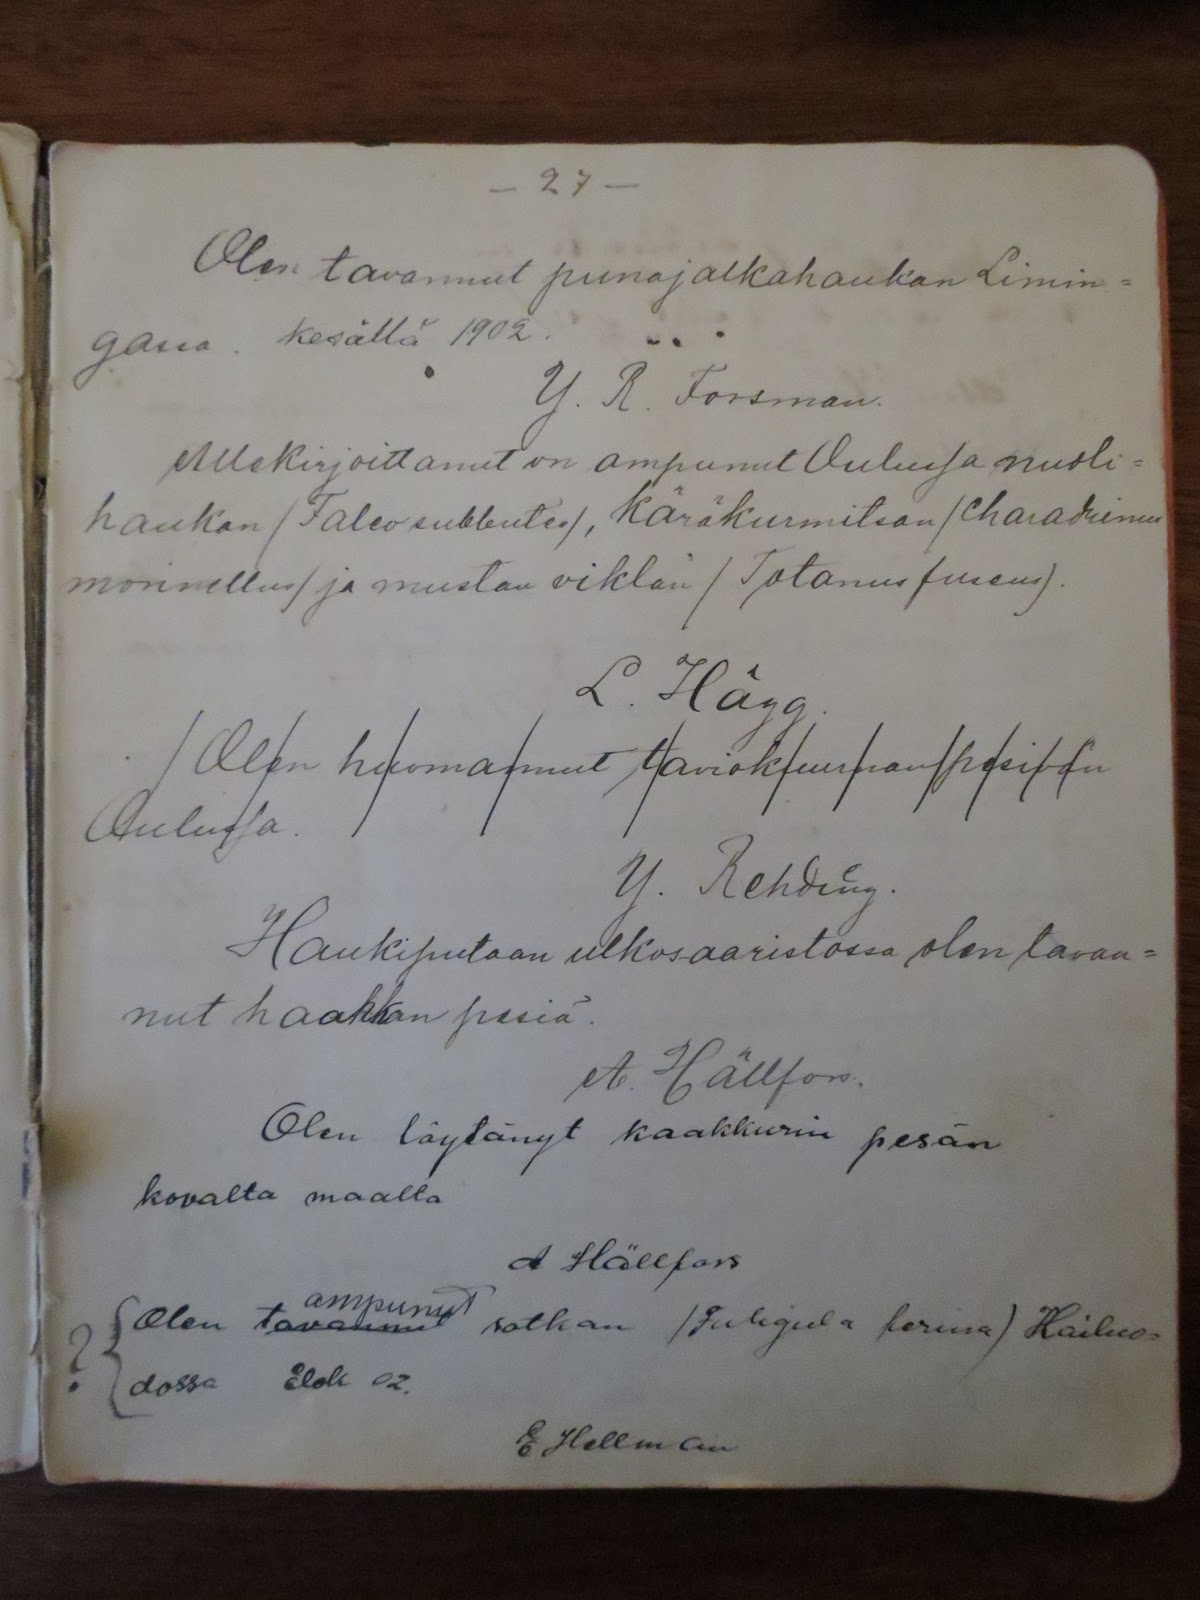 — 27 —
Olen tavannut punajalkahaukan Limin=
gassa. kesällä 1902.
Y. R. Forsman.
Allekirjoittanut on ampunut Oulussa nuoli=
haukan / Falco subbuteo/, Käräkurmitsan / Charadrius
morinellus/ ja mustan viklan / Totanus fuscus).
L. Hägg.
Olen huomannut taviokuurnan pesivän
Oulussa.
Y. Rehding.
Haukiputaan ulkosaaristossa olen tavan=
nut haahkan pesiä.
A. Hällfors.
Olen löytänyt kaakkurin pesän
kovalta maalta
A Hällfors
ampunut
? Olen tavannut sotkan / Fuligula ferina) Hailuo=
dossa Elok 02.
E Hellman